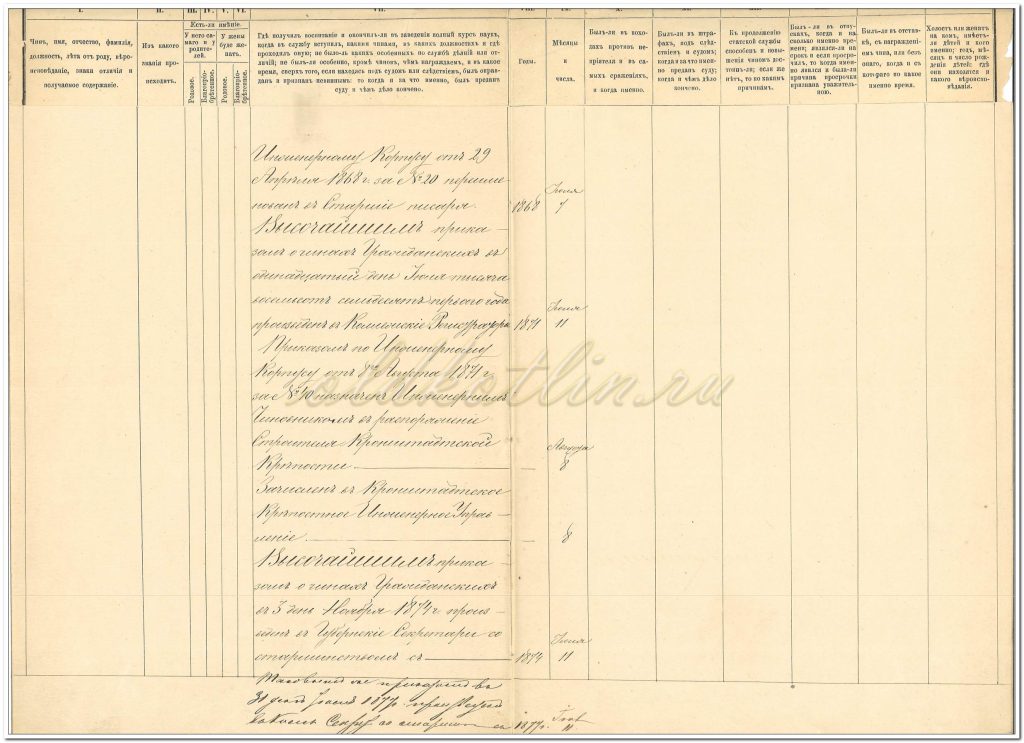 I.
II.
III.
IV.
V.
VI.
VII.
VIII.
IX.
X.
XI.
XII.
XIII.
XIV.
XV.
Есть-ли имѣніе.
У него самаго и у родителей.
У жены буде женатъ.
Чинъ, имя, отчество, фамилія,
должность, лѣта отъ роду, вѣро-
исповѣданіе, знаки отличія и
получаемое содержаніе.
Изъ какого
званія про-
исходитъ.
Родовое.
Благопрі-
обрѣтенное.
Родовое.
Благопрі-
обрѣтенное.
Гдѣ получилъ воспитаніе и окончилъ-ли въ заведеніи полный курсъ наукъ,
когда въ службу вступилъ, какими чинами, въ какихъ должностяхъ и гдѣ
проходилъ оную; не было-ли какихъ особенныхъ по службѣ дѣяній или от-
личій; не былъ-ли особенно, кромѣ чиновъ, чѣмъ награждаемъ, и въ какое
время, сверхъ того, если находясь подъ судомъ или слѣдствіемъ, былъ оправ-
данъ и признанъ невиннымъ, то когда и за что именно, былъ преданъ
суду и чѣмъ дѣло кончено.
Годы.
Мѣсяцы
и
числа.
Былъ-ли въ похо-
дахъ противъ не-
пріятеля и въ са-
мыхъ сраженіяхъ,
и когда именно.
Былъ-ли въ штра-
фахъ, подъ слѣд-
ствіемъ и судомъ;
когда и за что име-
нно преданъ суду;
когда и чѣмъ дѣло
кончено.
Къ продолженію
статской службы
способенъ и повы-
шенія чиномъ до-
стоинъ-ли; если же
нѣтъ, то по какимъ
причинамъ.
Былъ-ли въ отпу-
скахъ, когда и на
сколько именно вре-
мени; являлся-ли на
срокъ и если просро-
чилъ, то когда имен-
но явился и была-ли
причина просрочки
признана уважитель-
ною.
Былъ-ли въ отставкѣ
съ награжденіемъ
чина, или безъ
онаго, когда и съ
котораго по какое
именно время.
Холостъ или женатъ,
на комъ, имѣетъ-
ли дѣтей и кого
именно; годъ, мѣ-
сяцъ и число рож-
денія дѣтей; гдѣ
они находятся и
какого вѣроиспо-
вѣданія.
Инженерному Корпусу отъ 29
Апрѣля 1868 г. за № 20 переиме-
нованъ въ Старшіе писаря.
1868
Іюля
7
Высочайшимъ прика-
зомъ о чинахъ Гражданскихъ въ
одинадцатый день Іюля тысяча
восемьсотъ семьдесятъ перваго года
произведенъ въ Коллежскіе Регистраторы
1871
Іюля
11
Приказомъ по Инженерному
Корпусу отъ 8го Августа 1871 г.
за № 40 назначенъ Инженернымъ
Чиновникомъ въ распоряженіе
Строителя Кронштадтской
Крѣпости
—
Августа
8
Зачисленъ въ Кронштадтское
Крѣпостное Инженерное Управ-
леніе
—
8
Высочайшимъ прика-
зомъ о чинахъ Гражданскихъ
въ 3 день Ноября 1874 г. произ-
веденъ въ Губернскіе Секретари со
старшинствомъ съ
1874
Іюля
11
31 день 1877 г.
1877 г.
11
oldkotlin.ru